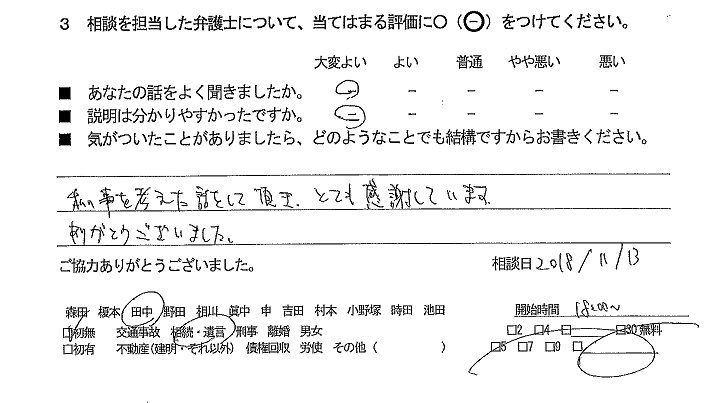 3 相談を担当した弁護士について、当てはまる評価に○(㊀)をつけてください。
大変よい よい 普通 やや悪い 悪い
■ あなたの話をよく聞きましたか。 − − − − −
■ 説明は分かりやすかったですか。 − − − − −
■ 気がついたことがありましたら、どのようなことでも結構ですからお書きください。
私の事を考えた話をして頂き、とても感謝しています。
ありがとうございました。
ご協力ありがとうございました。 相談日 2018/11/13
森田 榎本 田中 野田 相川 眞中 申 吉田 村本 小野塚 時田 池田 開始時間 18:00〜
□初無 交通事故 相続・遺言 刑事 離婚 男女 □2 □4 □ □30 無料
□初有 不動産(建明・それ以外) 債権回収 労使 その他( ) □5 □7 □9 □